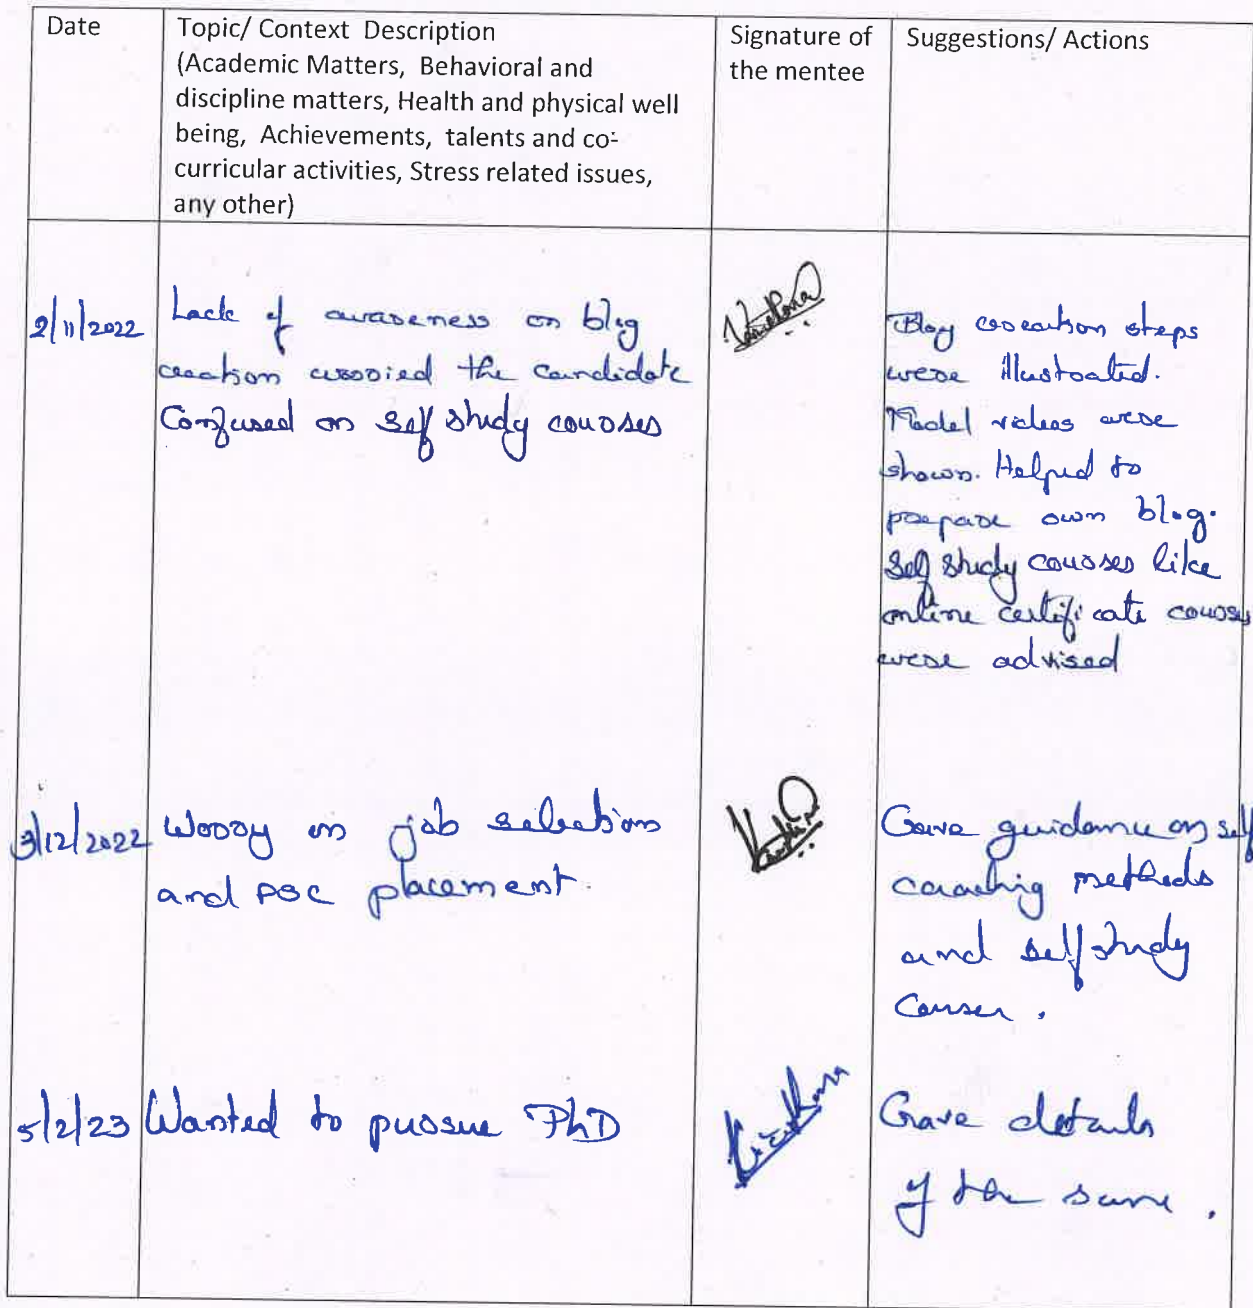 Date
Topic/ Context Description
(Academic Matters, Behavioral and
discipline matters, Health and physical well
being, Achievements, talents and co-
curricular activities, Stress related issues,
any other)
Signature of
the mentee
Suggestions/ Actions
2/11/2022
Lack of awareness on blog
creation worried the candidate
Confused on self study courses
Blog creation steps
were illustrated.
Model videos were
shown. Helped to
prepare own blog.
Self study courses like
online certificate courses
were advised
3/12/2022
Worry on job selections
and PSC placement.
Gave guidance on self
coaching methods
and self study
5/2/23
Wanted to pursue PhD
Gave details
of the same.